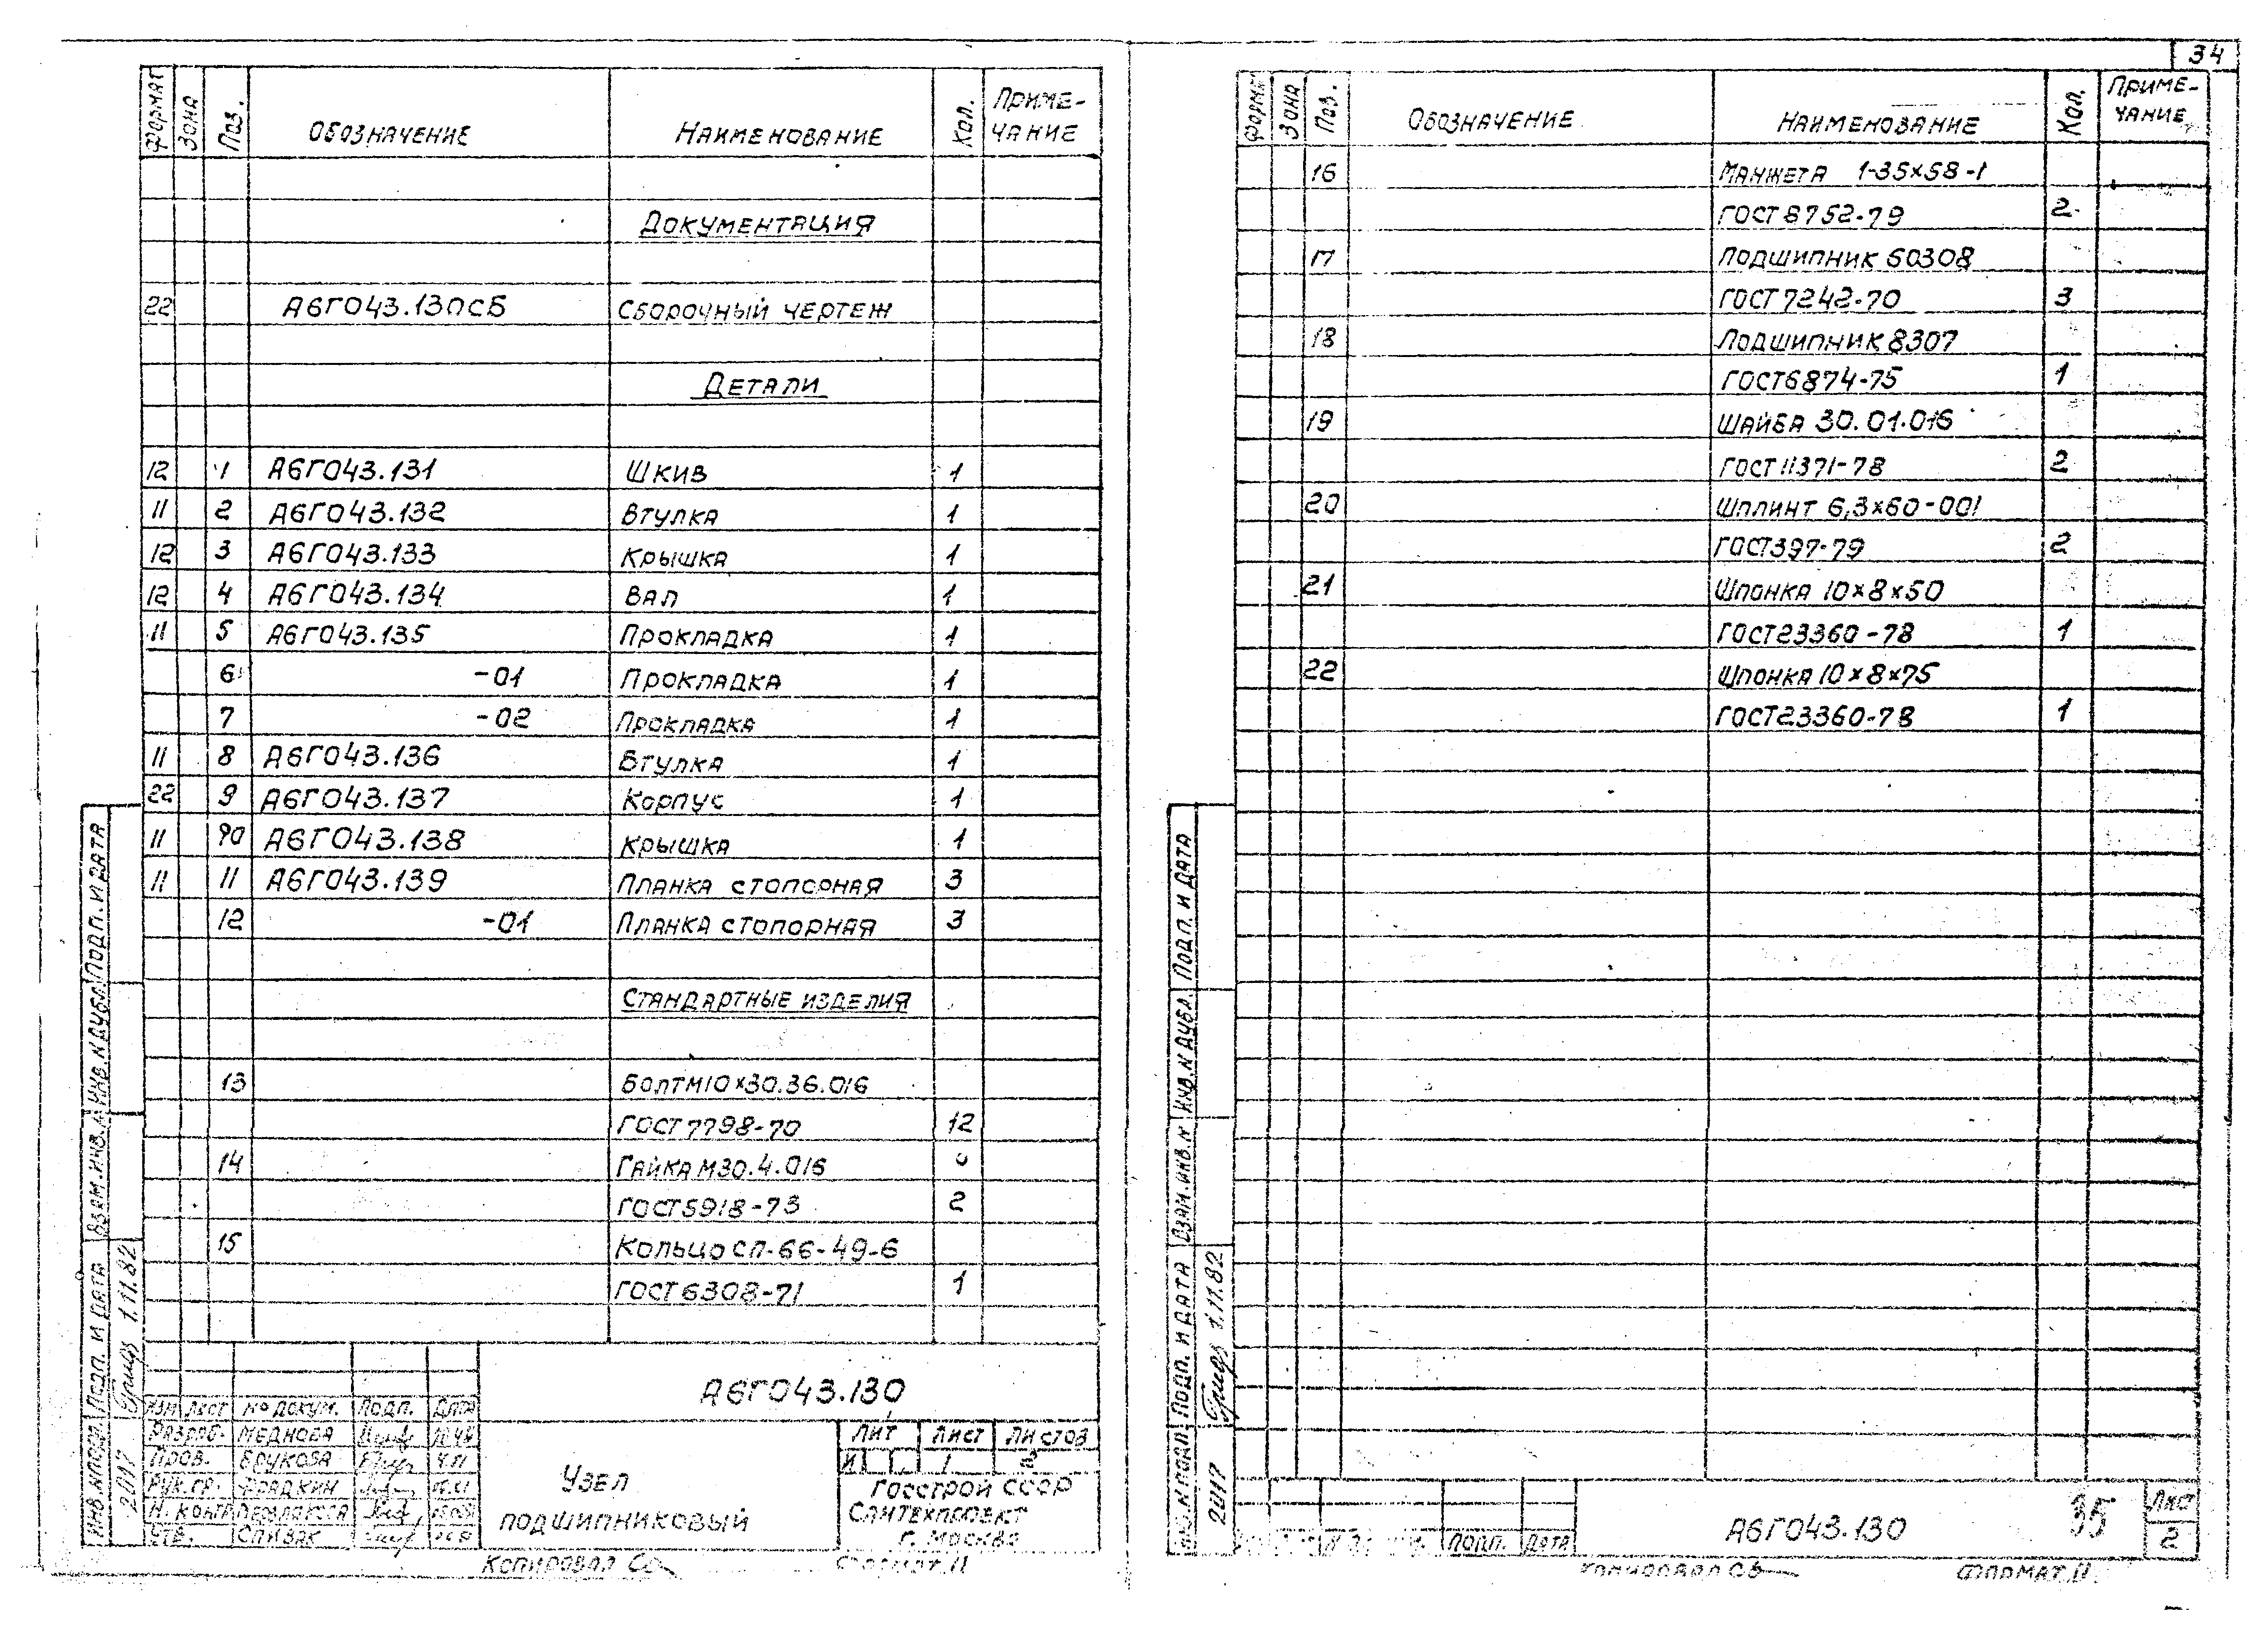 34
Формат Зона Поз. Обозначение Наименование Кол. Примечание
Документация
22 А6Г043.130СБ Сборочный чертеж
Детали
12 1 А6Г043.131 Шкив 1
11 2 А6Г043.132 Втулка 1
12 3 А6Г043.133 Крышка 1
12 4 А6Г043.134 Вал 1
11 5 А6Г043.135 Прокладка 1
6 -01 Прокладка 1
7 -02 Прокладка 1
11 8 А6Г043.136 Втулка 1
22 9 А6Г043.137 Корпус 1
11 10 А6Г043.138 Крышка 1
11 11 А6Г043.139 Планка стопорная 3
12 -01 Планка стопорная 3
Стандартные изделия
13 Болт М10×30.36.016
ГОСТ 7798-70 12
14 Гайка М30.4.016
ГОСТ 5918-73 2
15 Кольцо СП-66-49-6
ГОСТ 6308-71 1
Инв.№подл. Подп. и дата Взам.инв.№ Инв.№дубл. Подп. и дата
2017 1.11.82
А6Г043.130
Изм Лист № докум. Подп. Дата
Разраб. Меднова
Пров. Брукова
Рук.гр. Фрадкин
Н. контр.
Утв. Спивак
Узел
подшипниковый
Лит Лист Листов
И 1 2
Госстрой СССР
Сантехпроект
г. Москва
Копировал Формат 11
Формат Зона Поз. Обозначение Наименование Кол. Примечание
16 Манжета 1-35×58-1
ГОСТ 8752-79 2
17 Подшипник 60308
ГОСТ 7242-70 3
18 Подшипник 8307
ГОСТ 6874-75 1
19 Шайба 30.01.016
ГОСТ 11371-78 2
20 Шплинт 6,3×60-001
ГОСТ 397-79 2
21 Шпонка 10×8×50
ГОСТ 23360-78 1
22 Шпонка 10×8×75
ГОСТ 23360-78 1
Инв.№подл. Подп. и дата Взам.инв.№ Инв.№дубл. Подп. и дата
2017 1.11.82
Подп. Дата
А6Г043.130
35
Лист
2
Копировал Формат 11